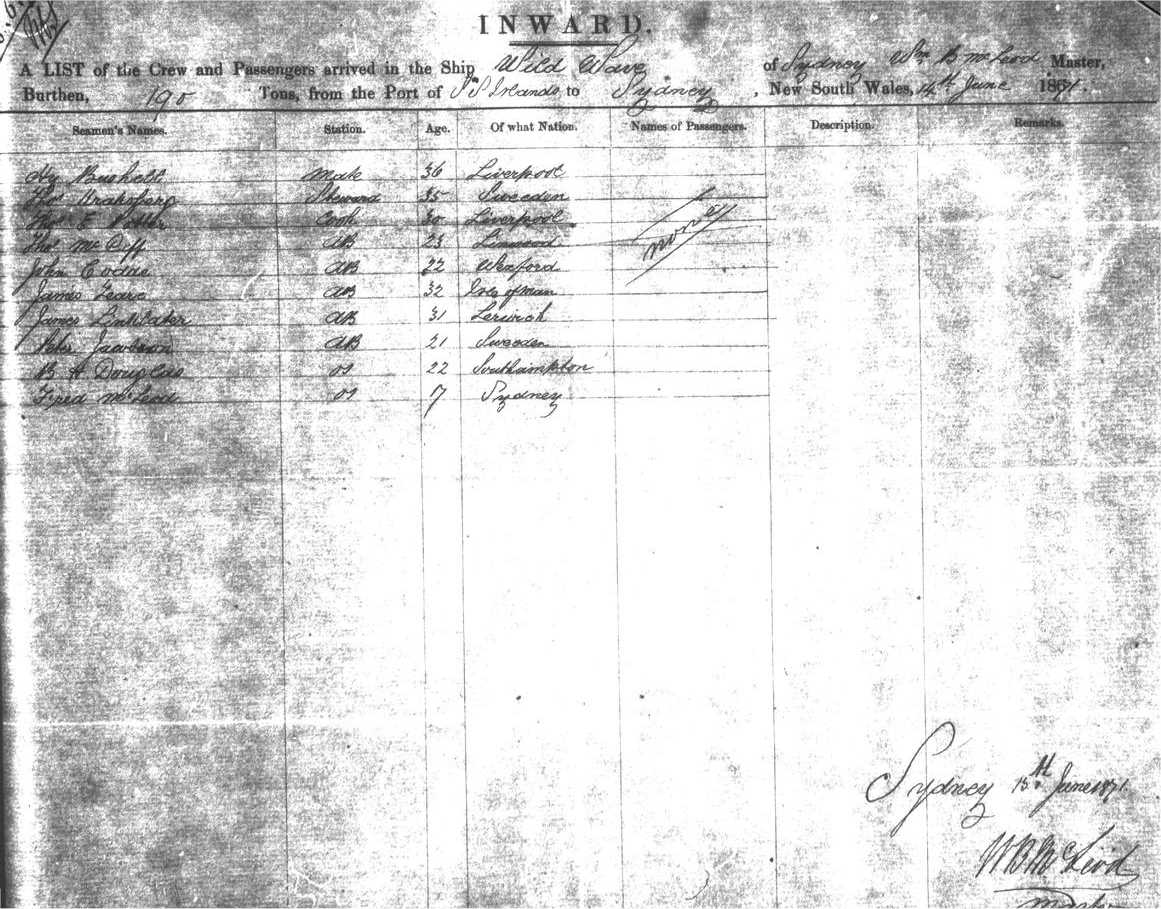 INWARD.
A LIST of the Crew and Passengers arrived in the Ship Wild Wave of Sydney Wm B McLeod Master,
Burthen, 190 Tons, from the Port of S S Islands to Sydney, New South Wales, 14th June 1871.
Seamen's Names. Station. Age. Of what Nation. Names of Passengers. Description. Remarks.
Hy Mate 36 Liverpool
Thos Steward 35 Sweeden
Thos E Cook 30 Liverpool
Thos McDiff AB 23 none
John Codde AB 22 Wexford
James AB 32 Isle of Man
James Linklater AB 31 Lerwick
Peter Jacobson AB 21 Sweeden
B A Douglas OS 22 Southampton
Fred McLeod OS 7 Sydney
Sydney 15th June 1871
W B McLeod
Master